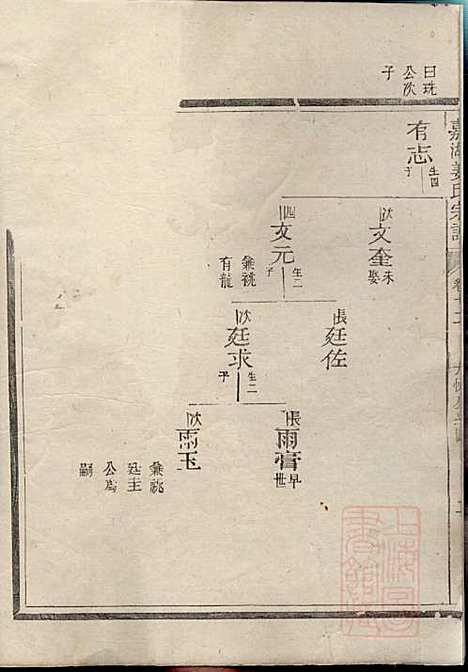 嘉湖姜氏宗譜
曰珧公次子
有志
生四子
次
文奎
未娶
四
文元
生二子
兼祧有龍
長
廷佐
次
廷求
生二子
長
雨膏
早世
次
雨玉
兼祧廷主公為嗣
上海圖書館藏